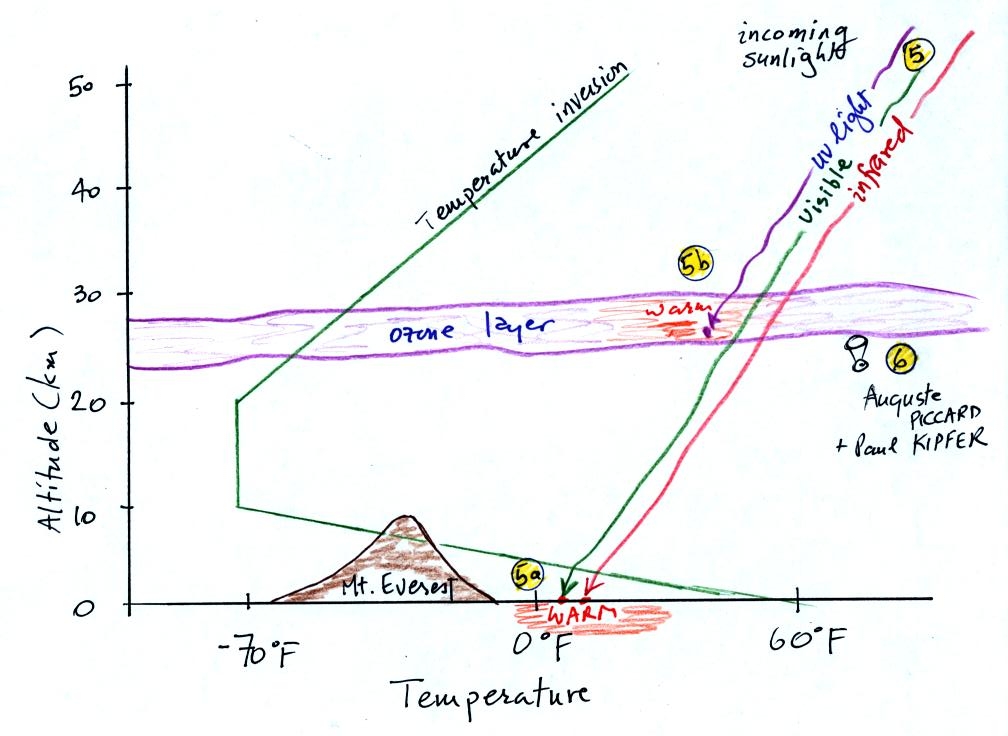 incoming
sunlight
5
50
Temperature inversion
uv light
visible
infrared
40
5b
30
warm
ozone layer
6
Auguste
PICCARD
+ Paul KIPFER
20
Altitude (km)
10
5a
Mt. Everest
0
WARM
-70°F
0°F
60°F
Temperature